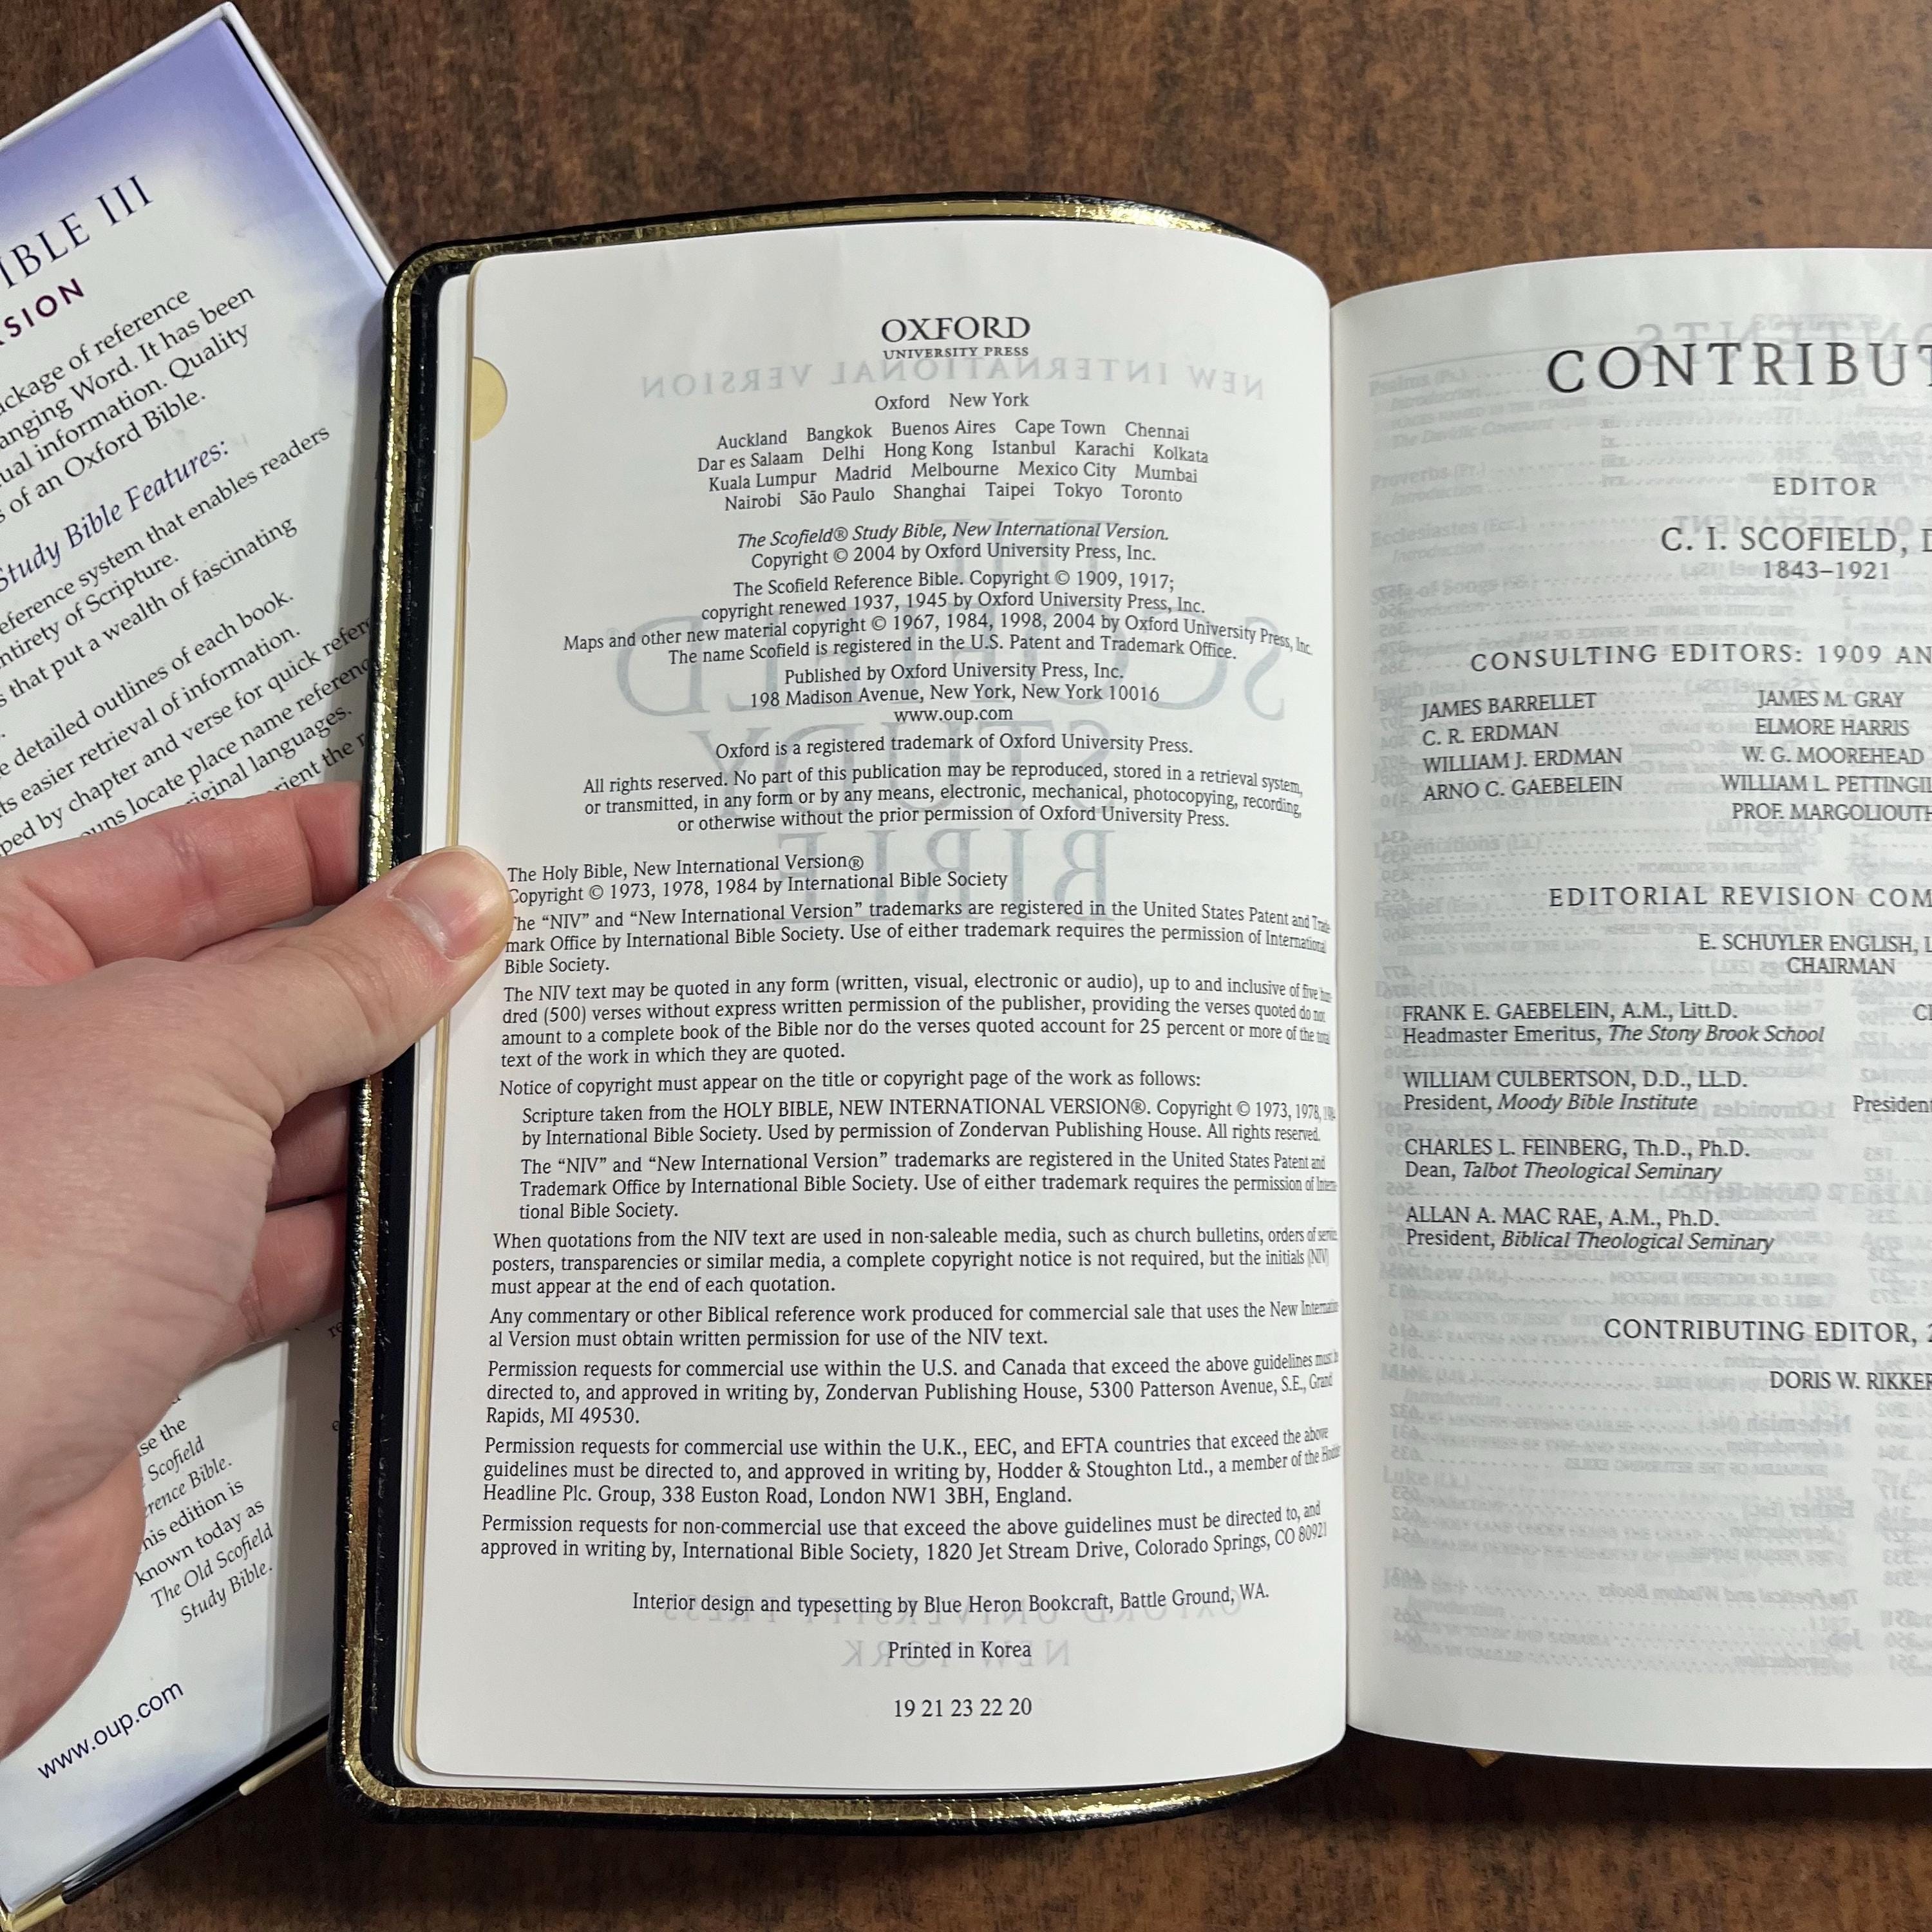 IBLE III
SION
ackage of reference
anging Word. It has been
ual information. Quality
s of an Oxford Bible.
Study Bible Features:
eference system that enables readers
ntirety of Scripture.
s that put a wealth of fascinating
e detailed outlines of each book.
ts easier retrieval of information.
ped by chapter and verse for quick refer
ouns locate place name referenc
riginal languages.
rient the r
se the
Scofield
rence Bible.
his edition is
known today as
The Old Scofield
Study Bible.
www.oup.com
OXFORD
UNIVERSITY PRESS
Oxford New York
Auckland Bangkok Buenos Aires Cape Town Chennai
Dar es Salaam Delhi Hong Kong Istanbul Karachi Kolkata
Kuala Lumpur Madrid Melbourne Mexico City Mumbai
Nairobi São Paulo Shanghai Taipei Tokyo Toronto
The Scofield® Study Bible, New International Version.
Copyright © 2004 by Oxford University Press, Inc.
The Scofield Reference Bible. Copyright © 1909, 1917;
copyright renewed 1937, 1945 by Oxford University Press, Inc.
Maps and other new material copyright © 1967, 1984, 1998, 2004 by Oxford University Press, Inc.
The name Scofield is registered in the U.S. Patent and Trademark Office.
Published by Oxford University Press, Inc.
198 Madison Avenue, New York, New York 10016
www.oup.com
Oxford is a registered trademark of Oxford University Press.
All rights reserved. No part of this publication may be reproduced, stored in a retrieval system,
or transmitted, in any form or by any means, electronic, mechanical, photocopying, recording,
or otherwise without the prior permission of Oxford University Press.
The Holy Bible, New International Version®
Copyright © 1973, 1978, 1984 by International Bible Society
The “NIV” and “New International Version” trademarks are registered in the United States Patent and Trade
mark Office by International Bible Society. Use of either trademark requires the permission of International
Bible Society.
The NIV text may be quoted in any form (written, visual, electronic or audio), up to and inclusive of five hun
dred (500) verses without express written permission of the publisher, providing the verses quoted do not
amount to a complete book of the Bible nor do the verses quoted account for 25 percent or more of the total
text of the work in which they are quoted.
Notice of copyright must appear on the title or copyright page of the work as follows:
Scripture taken from the HOLY BIBLE, NEW INTERNATIONAL VERSION®. Copyright © 1973, 1978,
by International Bible Society. Used by permission of Zondervan Publishing House. All rights reserved.
The “NIV” and “New International Version” trademarks are registered in the United States Patent and
Trademark Office by International Bible Society. Use of either trademark requires the permission of Interna
tional Bible Society.
When quotations from the NIV text are used in non-saleable media, such as church bulletins, orders of service
posters, transparencies or similar media, a complete copyright notice is not required, but the initials (NIV)
must appear at the end of each quotation.
Any commentary or other Biblical reference work produced for commercial sale that uses the New Internation
al Version must obtain written permission for use of the NIV text.
Permission requests for commercial use within the U.S. and Canada that exceed the above guidelines must be
directed to, and approved in writing by, Zondervan Publishing House, 5300 Patterson Avenue, S.E., Grand
Rapids, MI 49530.
Permission requests for commercial use within the U.K., EEC, and EFTA countries that exceed the above
guidelines must be directed to, and approved in writing by, Hodder & Stoughton Ltd., a member of the Hodder
Headline Plc. Group, 338 Euston Road, London NW1 3BH, England.
Permission requests for non-commercial use that exceed the above guidelines must be directed to, and
approved in writing by, International Bible Society, 1820 Jet Stream Drive, Colorado Springs, CO 80921
Interior design and typesetting by Blue Heron Bookcraft, Battle Ground, WA.
Printed in Korea
19 21 23 22 20
CONTRIBUT
EDITOR
C. I. SCOFIELD, D
1843–1921
CONSULTING EDITORS: 1909 AN
JAMES BARRELLET JAMES M. GRAY
C. R. ERDMAN ELMORE HARRIS
WILLIAM J. ERDMAN W. G. MOOREHEAD
ARNO C. GAEBELEIN WILLIAM L. PETTINGIL
PROF. MARGOLIOUTH
EDITORIAL REVISION COM
E. SCHUYLER ENGLISH, L
CHAIRMAN
FRANK E. GAEBELEIN, A.M., Litt.D. Cl
Headmaster Emeritus, The Stony Brook School
WILLIAM CULBERTSON, D.D., LL.D.
President, Moody Bible Institute President
CHARLES L. FEINBERG, Th.D., Ph.D.
Dean, Talbot Theological Seminary
ALLAN A. MAC RAE, A.M., Ph.D.
President, Biblical Theological Seminary
CONTRIBUTING EDITOR, 2
DORIS W. RIKKER